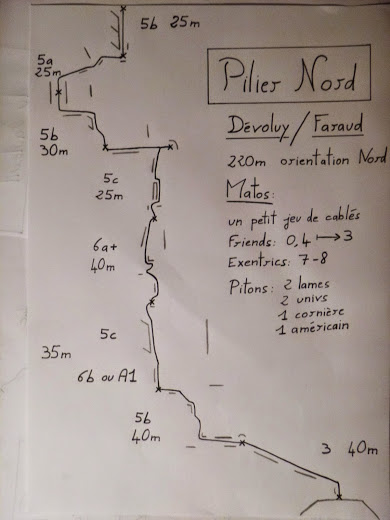 5b 25m
5a
25m
5b
30m
5c
25m
6a+
40m
5c
35m
6b ou A1
5b
40m
3 40m
Pilier Nord
Dévoluy/Faraud
220m orientation Nord
Matos:
un petit jeu de cablés
Friends: 0,4 ⟼ 3
Exentrics: 7-8
Pitons: 2 lames
2 univs
1 cornière
1 américain